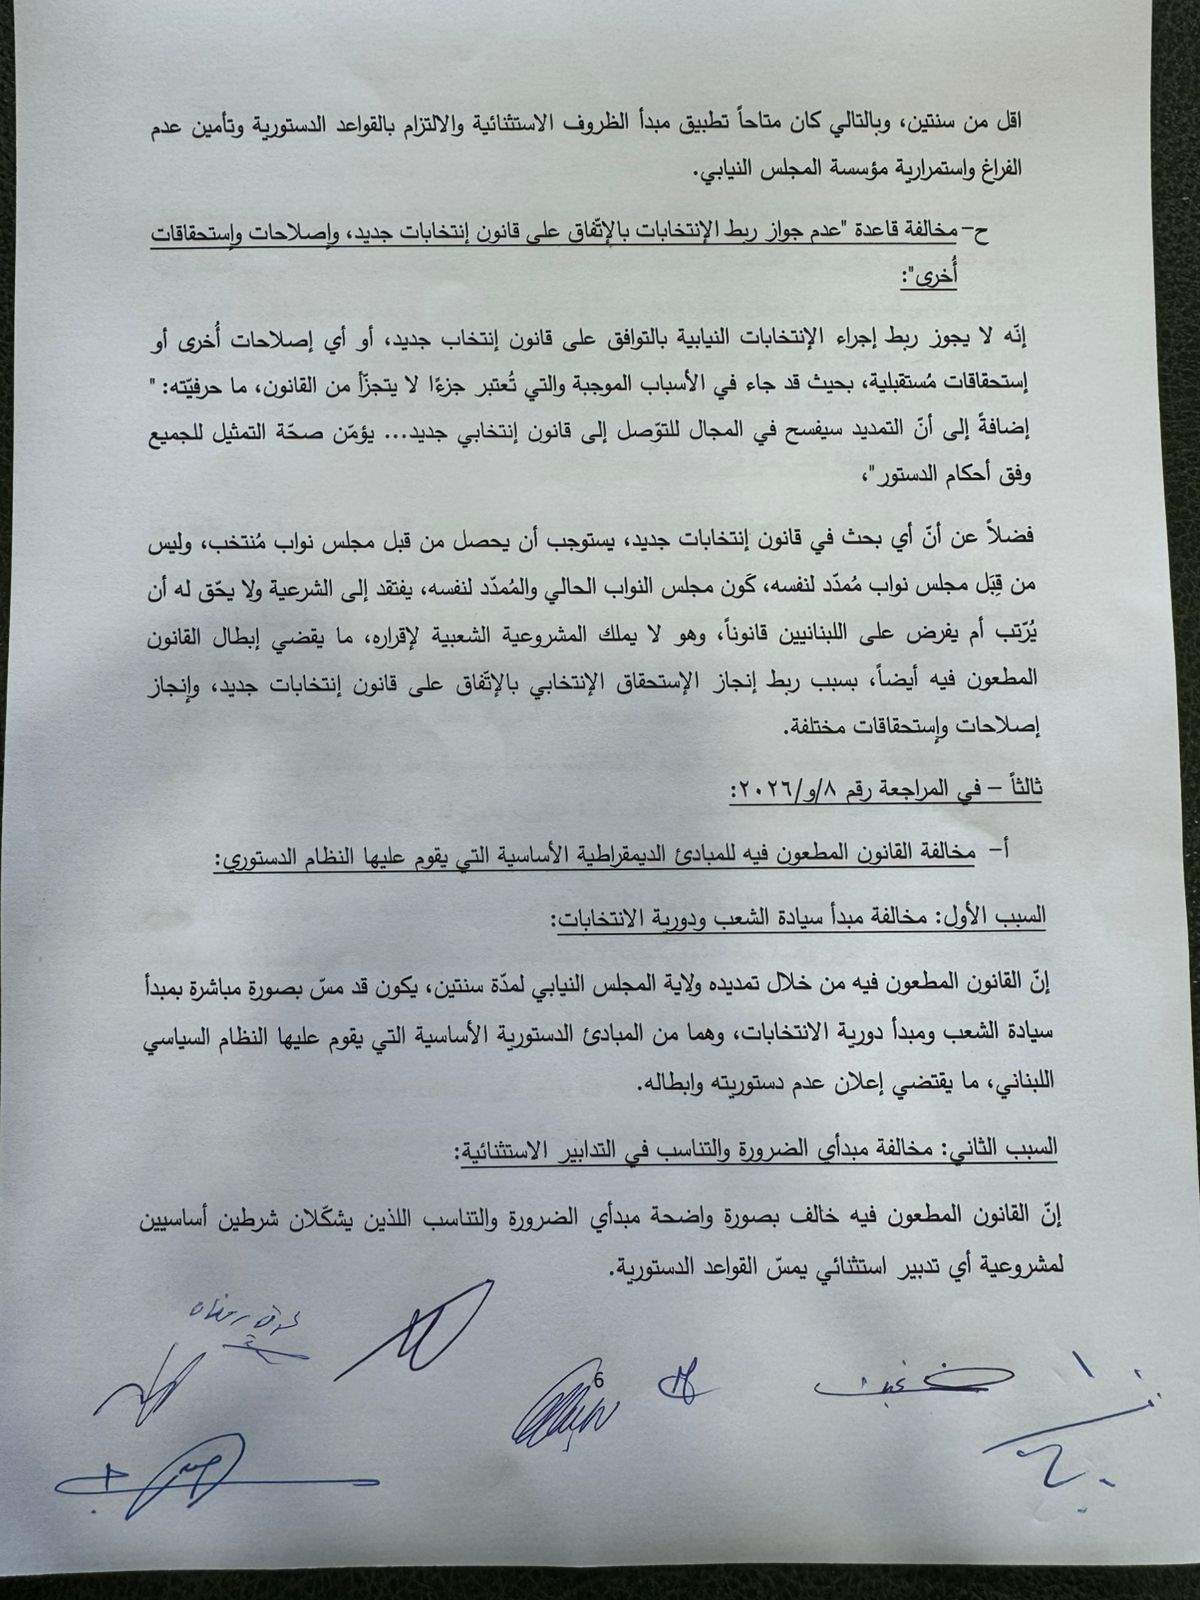 اقل من سنتين، وبالتالي كان متاحاً تطبيق مبدأ الظروف الاستثنائية والالتزام بالقواعد الدستورية وتأمين عدم
الفراغ واستمرارية مؤسسة المجلس النيابي.
ح- مخالفة قاعدة "عدم جواز ربط الإنتخابات بالإتّفاق على قانون إنتخابات جديد، وإصلاحات وإستحقاقات
أُخرى":
إنّه لا يجوز ربط إجراء الإنتخابات النيابية بالتوافق على قانون إنتخاب جديد، أو أي إصلاحات أُخرى أو
إستحقاقات مُستقبلية، بحيث قد جاء في الأسباب الموجبة والتي تُعتبر جزءًا لا يتجزّأ من القانون، ما حرفيّته: "
إضافةً إلى أنّ التمديد سيفسح في المجال للتوّصل إلى قانون إنتخابي جديد... يؤمّن صحّة التمثيل للجميع
وفق أحكام الدستور"،
فضلاً عن أنّ أي بحث في قانون إنتخابات جديد، يستوجب أن يحصل من قبل مجلس نواب مُنتخب، وليس
من قِبَل مجلس نواب مُمدّد لنفسه، كَون مجلس النواب الحالي والمُمدّد لنفسه، يفتقد إلى الشرعية ولا يحّق له أن
يُرّتب أم يفرض على اللبنانيين قانوناً، وهو لا يملك المشروعية الشعبية لإقراره، ما يقضي إبطال القانون
المطعون فيه أيضاً، بسبب ربط إنجاز الإستحقاق الإنتخابي بالإتّفاق على قانون إنتخابات جديد، وإنجاز
إصلاحات وإستحقاقات مختلفة.
ثالثاً – في المراجعة رقم ٨/و/٢٠٢٦:
أ- مخالفة القانون المطعون فيه للمبادئ الديمقراطية الأساسية التي يقوم عليها النظام الدستوري:
السبب الأول: مخالفة مبدأ سيادة الشعب ودورية الانتخابات:
إنّ القانون المطعون فيه من خلال تمديده ولاية المجلس النيابي لمدّة سنتين، يكون قد مسّ بصورة مباشرة بمبدأ
سيادة الشعب ومبدأ دورية الانتخابات، وهما من المبادئ الدستورية الأساسية التي يقوم عليها النظام السياسي
اللبناني، ما يقتضي إعلان عدم دستوريته وابطاله.
السبب الثاني: مخالفة مبدأي الضرورة والتناسب في التدابير الاستثنائية:
إنّ القانون المطعون فيه خالف بصورة واضحة مبدأي الضرورة والتناسب اللذين يشكّلان شرطين أساسيين
لمشروعية أي تدبير استثنائي يمسّ القواعد الدستورية.
6